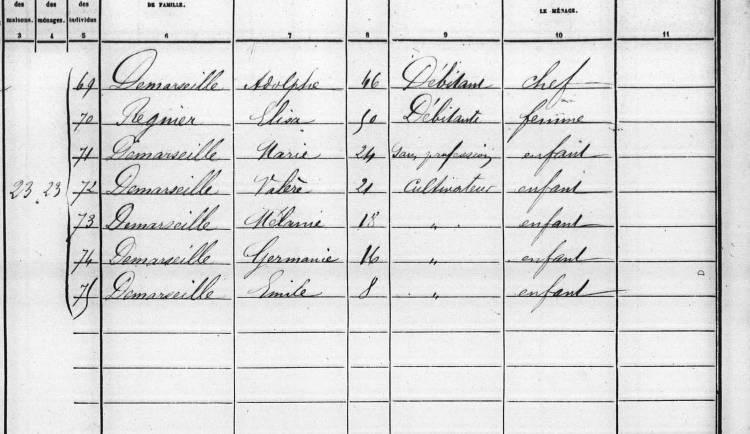 des des des DE FAMILLE. LE MÉNAGE.
maisons. ménages. individus
3 4 5 6 7 8 9 10 11
69 Demarseille Adolphe 46 Débitant chef
70 Regnier Elisa 50 Débitante femme
71 Demarseille Marie 24 Sans profession enfant
23 23 72 Demarseille Valère 21 Cultivateur enfant
73 Demarseille Mélanie 18 " enfant
74 Demarseille Germanie 16 " enfant
75 Demarseille Emile 8 " enfant